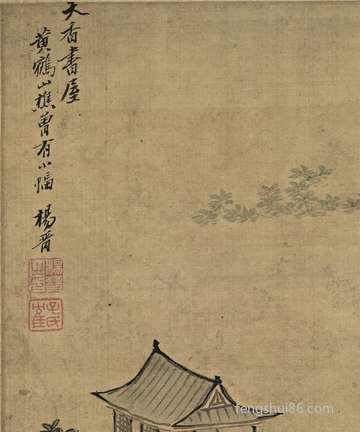 天香書屋
黃鶴山樵曾有小幅
楊晋
fengshui86.com